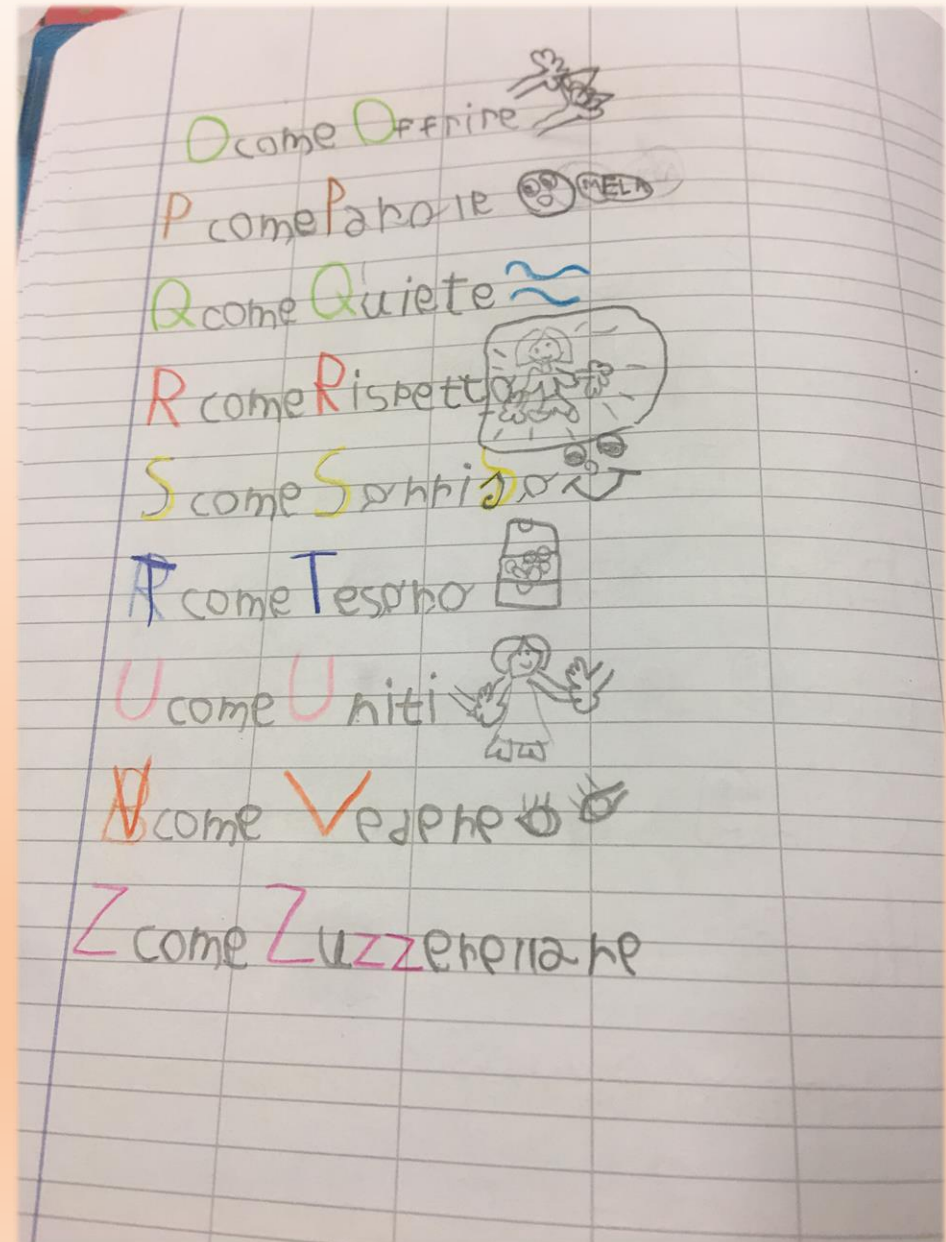 O come Offrire
P come Parole MELA
Q come Quiete
R come Rispetto
S come Sorriso
T come Tesoro
U come Uniti
V come Vedere
Z come Zuzzerellare